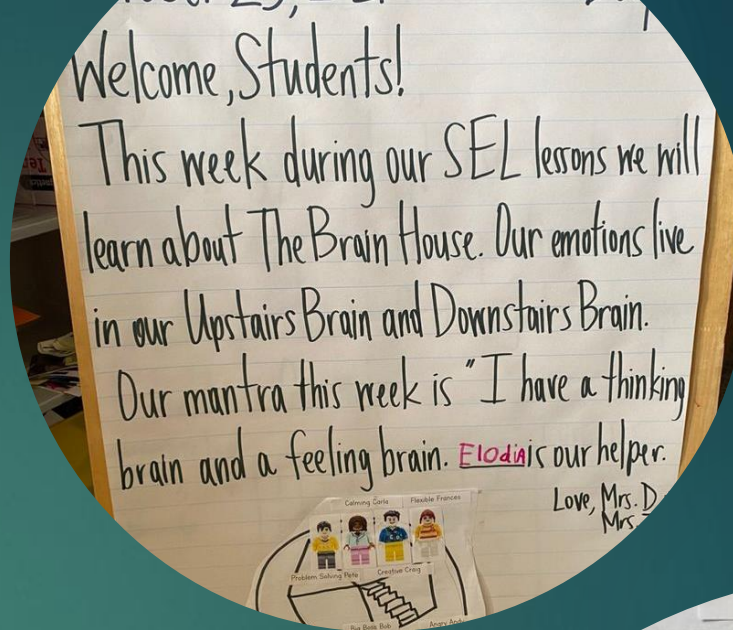 Welcome, Students!
This week during our SEL lessons we will
learn about The Brain House. Our emotions live
in our Upstairs Brain and Downstairs Brain.
Our mantra this week is "I have a thinking
brain and a feeling brain. Elodia is our helper.
Love, Mrs. D
Mrs.
Calming Carla Flexible Frances
Problem Solving Pete Creative Craig
Big Boss Bob Angry Andy